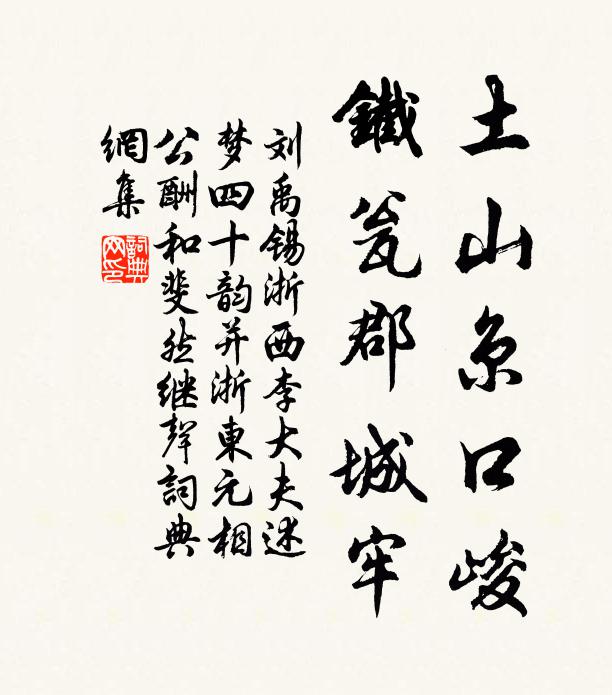 土山京口峻
鐵瓮郡城牢
刘禹锡浙西李大夫述
梦四十韵并浙東元相
公酬和斐然继聲詞典
網集
詞典网印